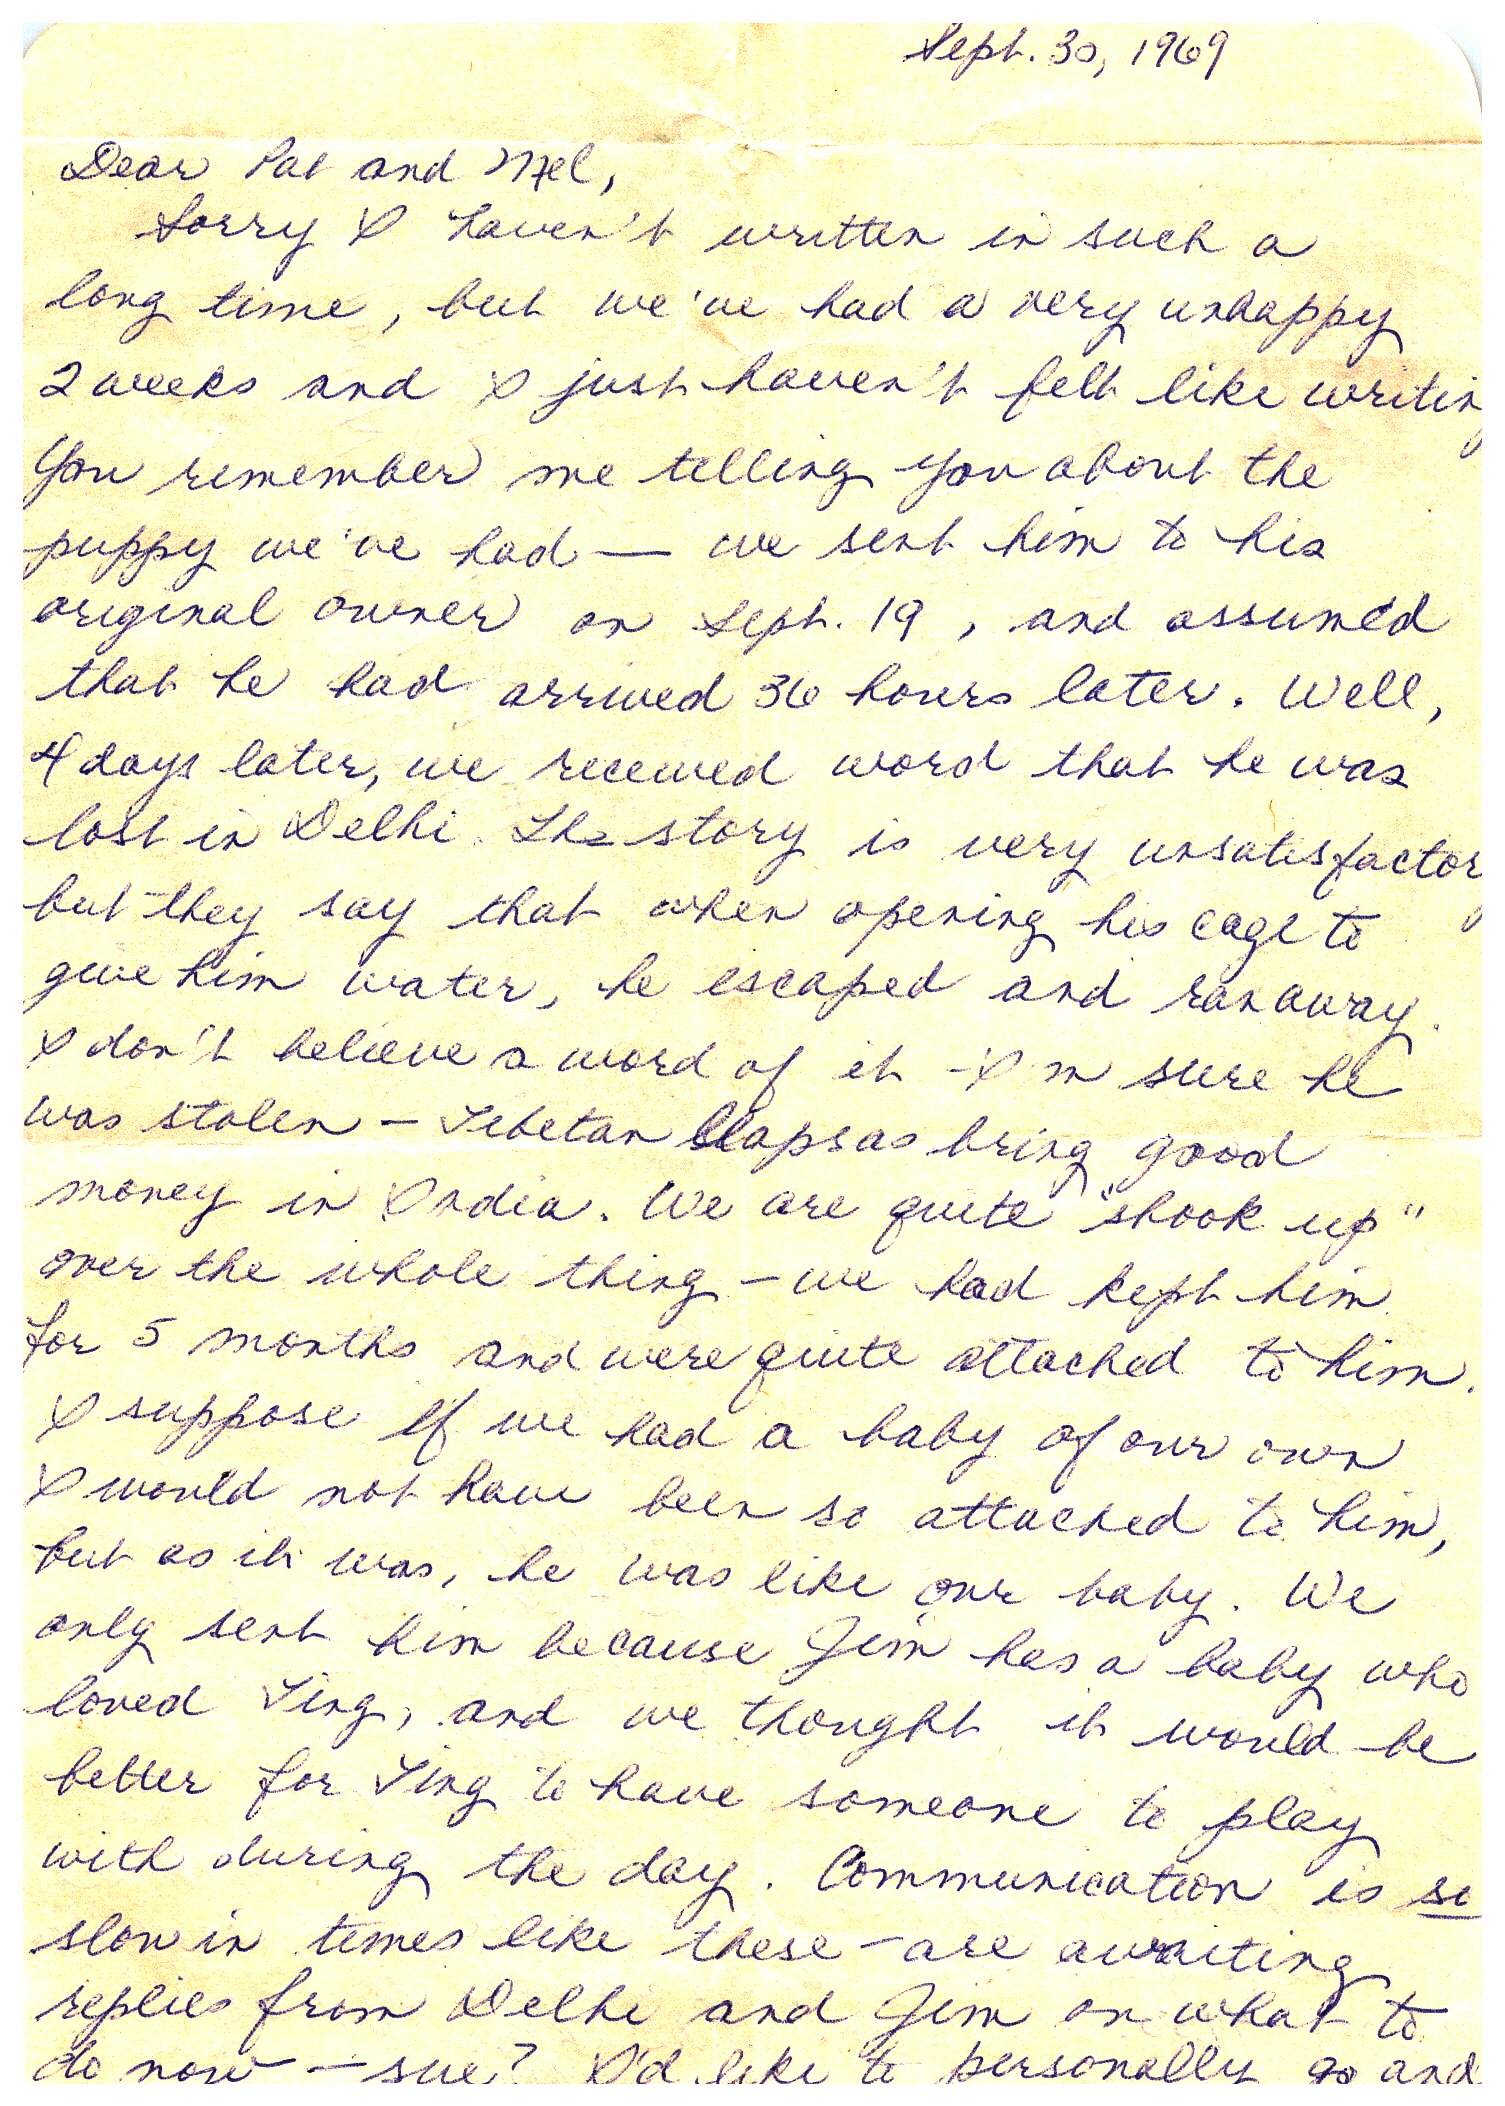 Sept. 30, 1969
Dear Pat and Mel,
Sorry I haven't written in such a
long time, but we've had a very unhappy
2 weeks and I just haven't felt like writin
You remember me telling you about the
puppy we've had — we sent him to his
original owner on Sept. 19, and assumed
that he had arrived 36 hours later. Well,
4 days later, we received word that he was
lost in Delhi. The story is very unsatisfactor
but they say that when opening his cage to
give him water, he escaped and ran away.
I don't believe a word of it - I'm sure he
was stolen — Tibetan apsas bring good
money in India. We are quite "shook up"
over the whole thing — we had kept him
for 5 months and were quite attached to him.
I suppose if we had a baby of our own
I would not have been so attached to him,
but as it was, he was like our baby. We
only sent him because Jim has a baby who
loved Ting, and we thought it would be
better for Ting to have someone to play
with during the day. Communication is so
slow in times like these — are awaiting
replies from Delhi and Jim on what to
do now — sue? I'd like to personally go and